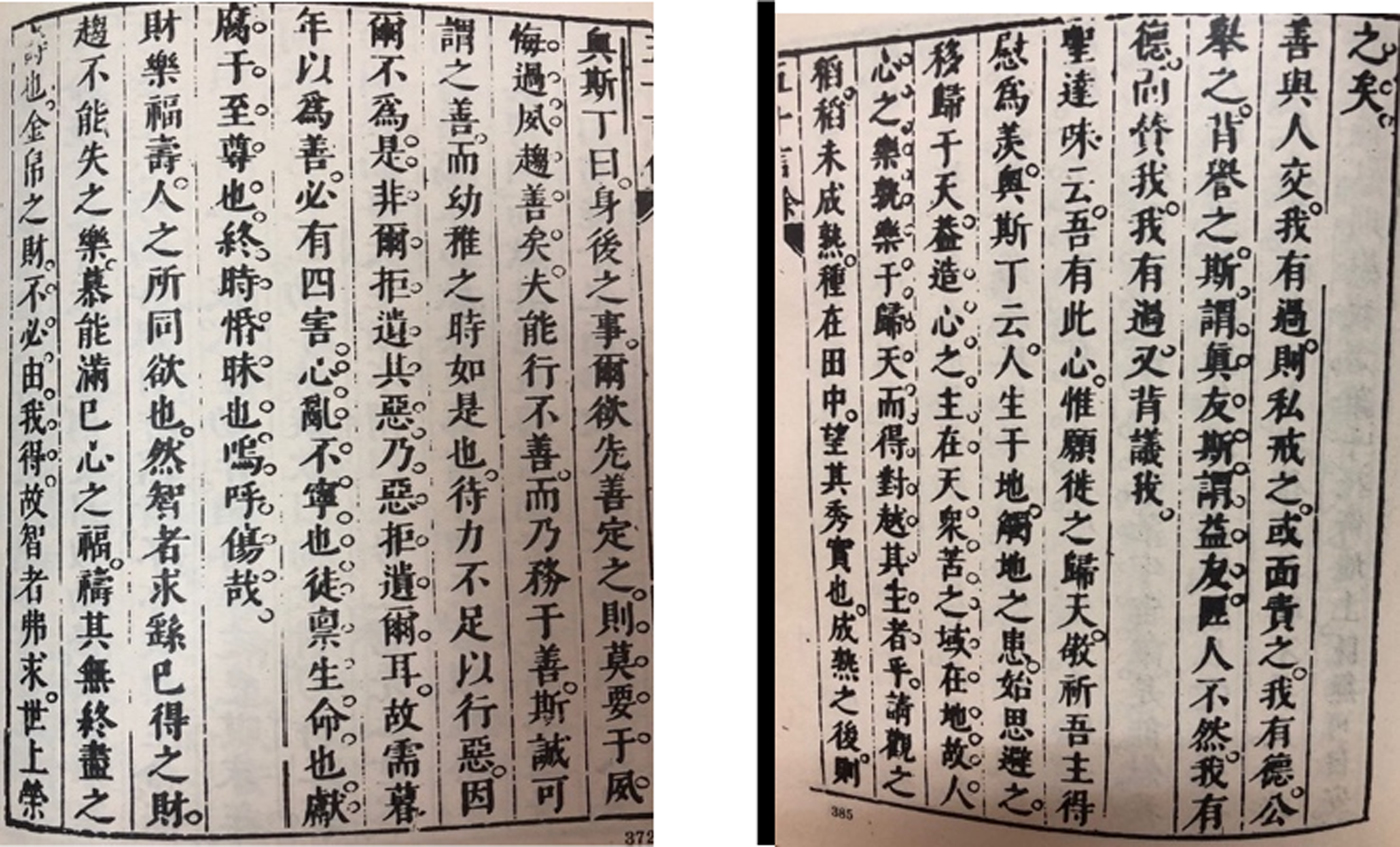 奧斯丁曰。身後之事。爾欲先善定之。則莫要于夙
悔過夙趨善矣。夫能行不善。而乃務于善。斯誠可
謂之善。而幼稚之時如是也。待力不足以行惡。因
爾不爲是。非爾拒遺其惡。乃惡拒遺爾耳。故需暮
年以爲善。必有四害。心亂不寧也。徒禀生命也。獻
腐于至尊也。終時惛昧也。嗚呼傷哉。
財樂福壽。人之所同欲也。然智者求繇已得之財。
趨不能失之樂。慕能滿已心之福。禱其無終盡之
壽也。金帛之財。不必由我得。故智者弗求。世上榮
372
之矣。
善與人交。我有過。則私戒之。或面責之。我有德。公
舉之。背譽之。斯謂眞友。斯謂益友。匪人不然。我有
德。面贊我。我有過。又背議我。
聖達味云。吾有此心。惟願徙之歸天。儆祈吾主得
慰爲羨。奧斯丁云。人生于地。觸地之患。始思避之。
移歸于天。益造心之主在天。衆苦之域在地。故人
心之樂。孰樂于歸天。而得對越其主者乎。請觀之
稻。稻未成熟。種在田中。望其秀實也。成熟之後。則
385